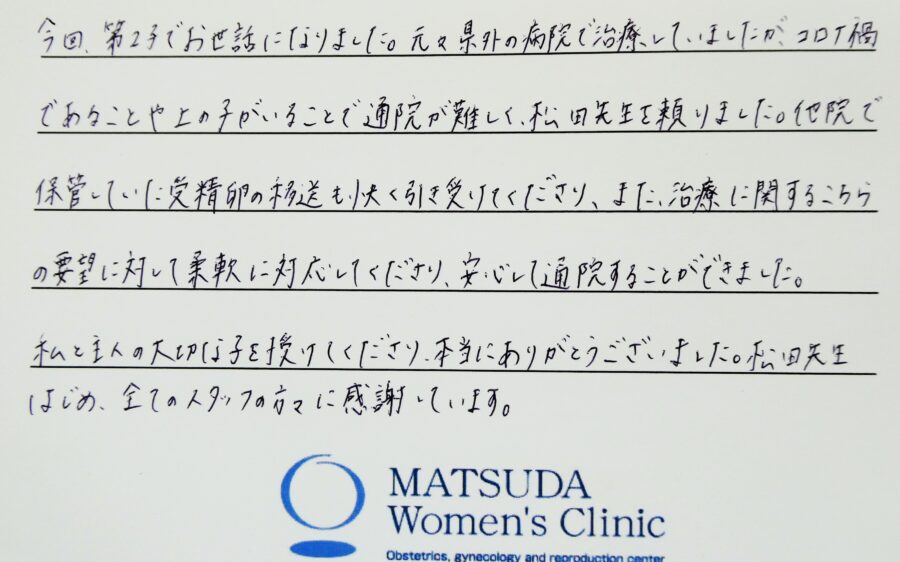 今回、第2子でお世話になりました。元々県外の病院で治療していましたが、コロナ禍
であることや上の子がいることで通院が難しく、松田先生を頼りました。他院で
保管していた受精卵の移送も快く引き受けてくださり、また、治療に関するこちら
の要望に対して柔軟に対応してくださり、安心して通院することができました。
私と主人の大切な子を授けてくださり、本当にありがとうございました。松田先生
はじめ、全てのスタッフの方々に感謝しています。
MATSUDA
Women's Clinic
Obstetrics, gynecology and reproduction center